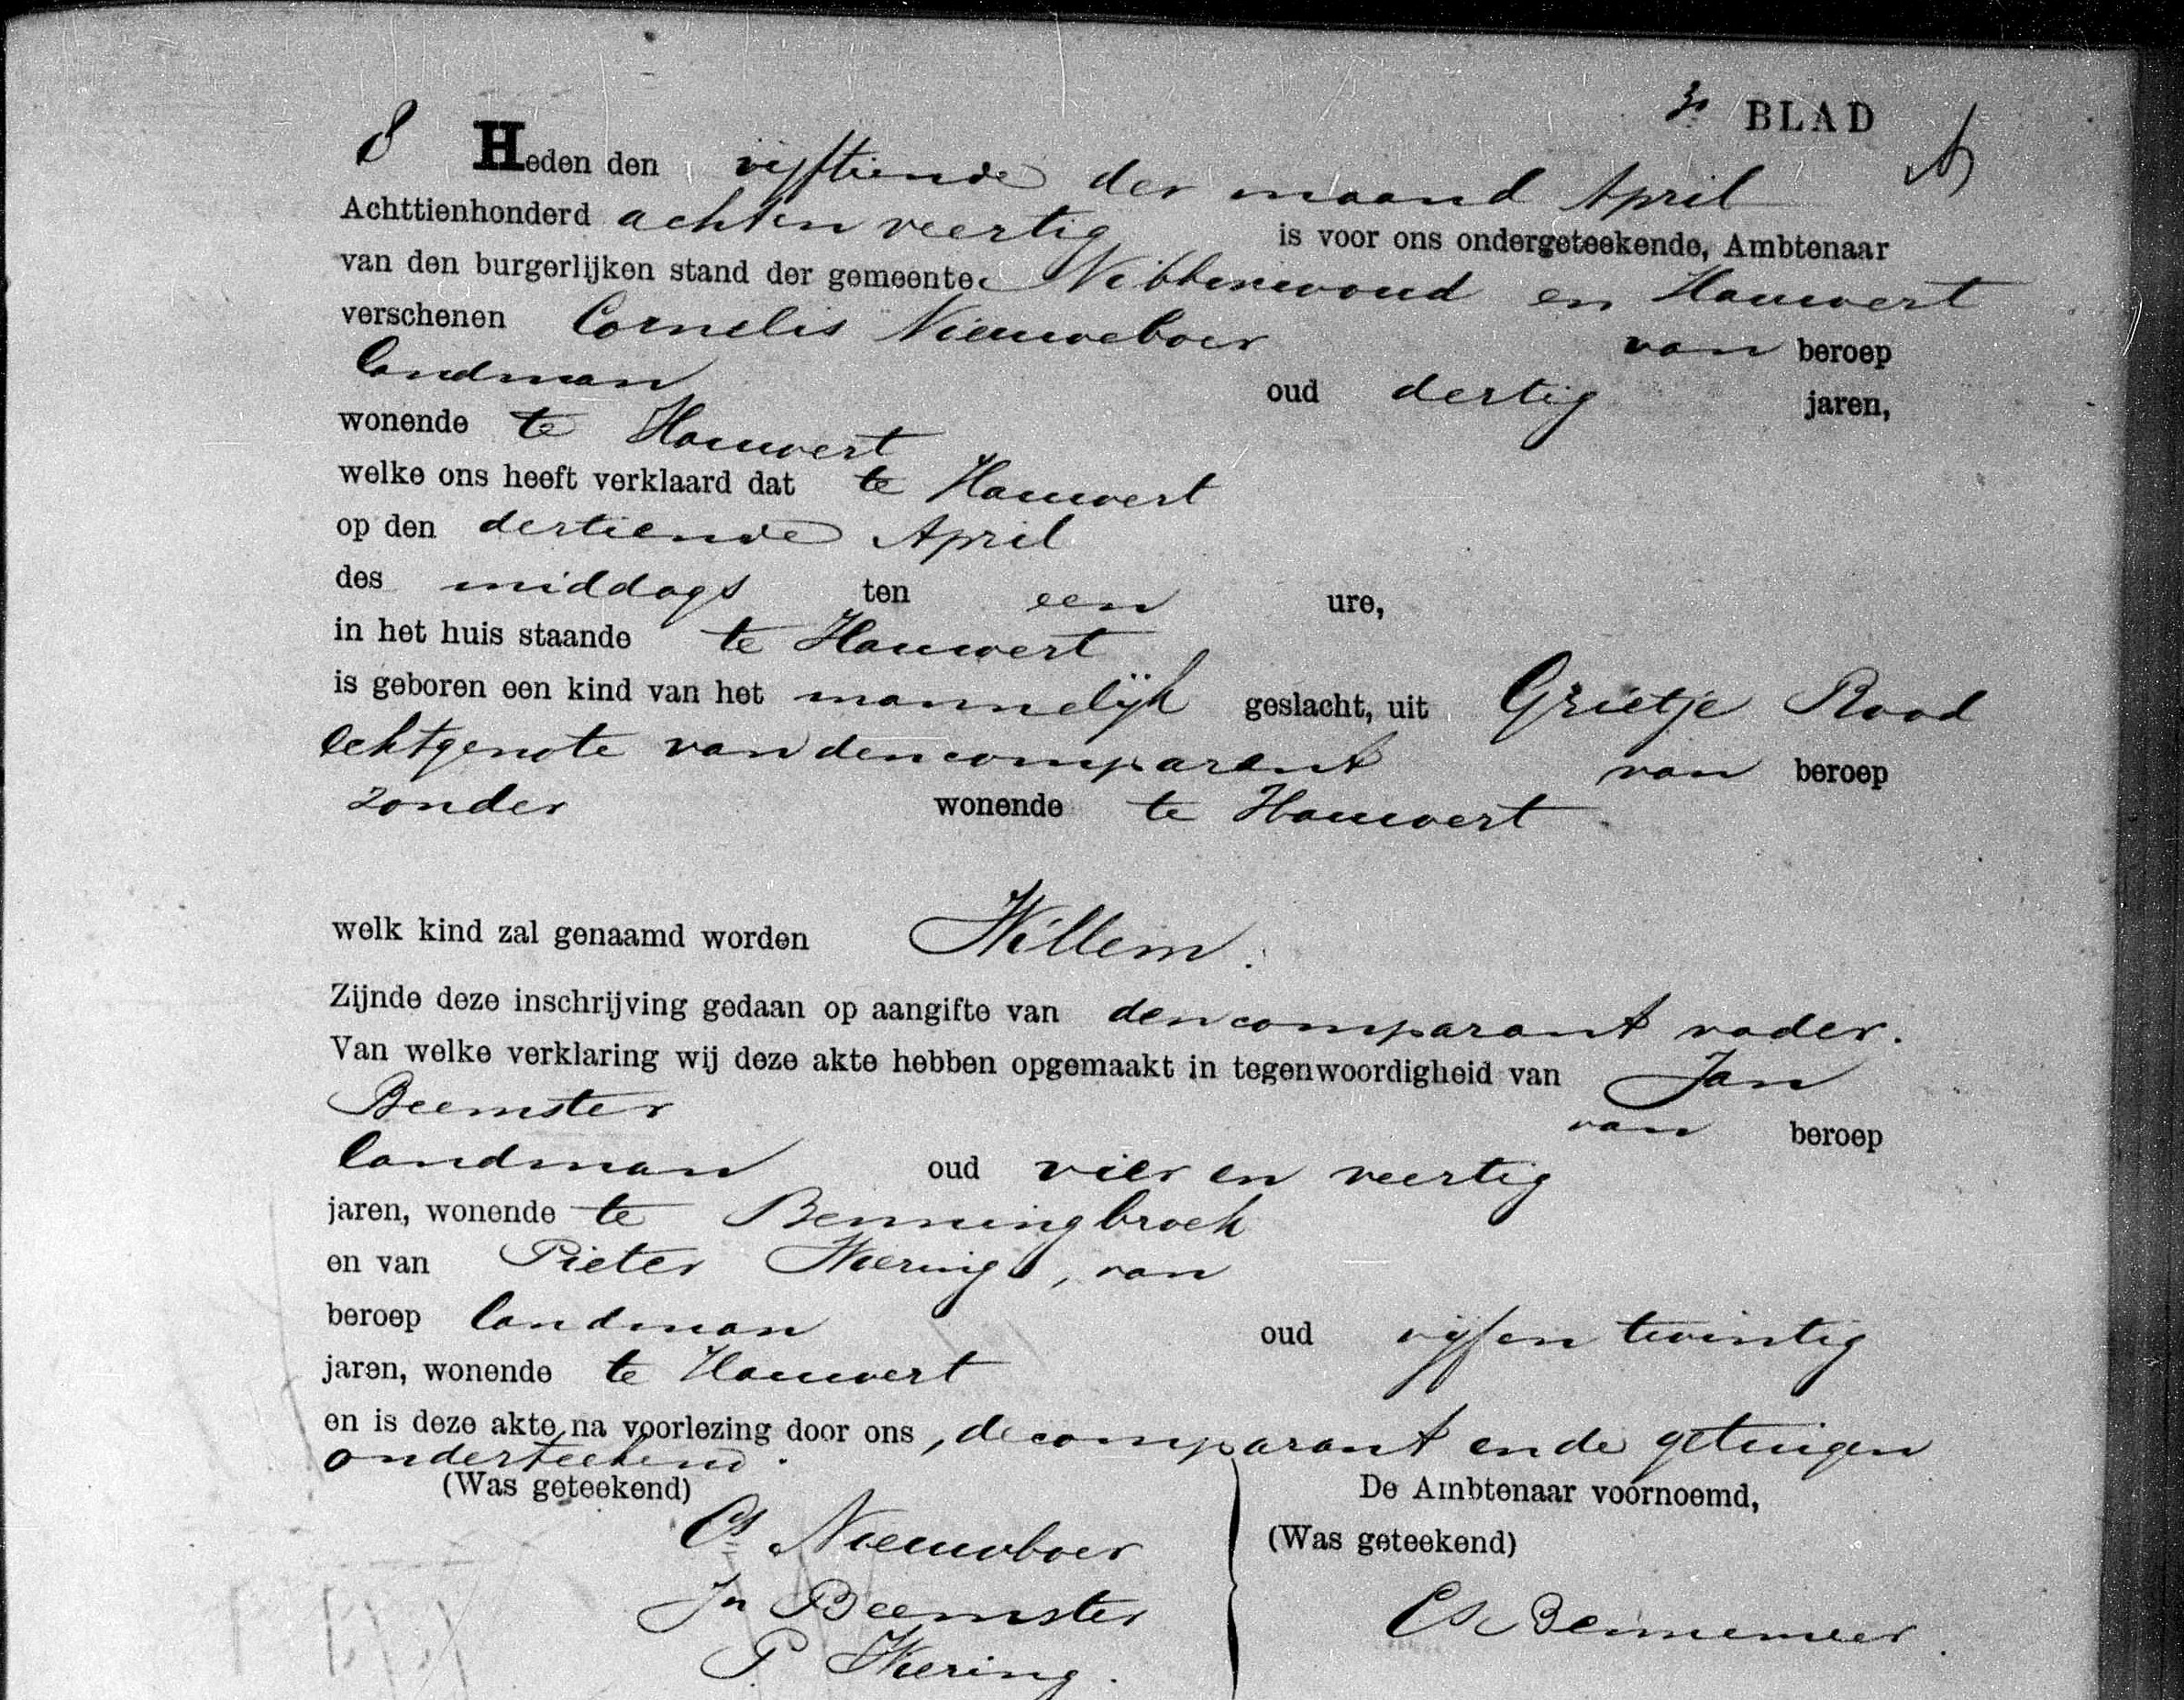 3e BLAD
8 Heden den vijftiende der maand April
Achttienhonderd acht en veertig is voor ons ondergeteekende, Ambtenaar
van den burgerlijken stand der gemeente Nibbixwoud en Hauwert
verschenen Cornelis Nieuweboer van beroep
landman oud dertig jaren,
wonende te Hauwert
welke ons heeft verklaard dat te Hauwert
op den dertiende April
des middags ten een ure,
in het huis staande te Hauwert
is geboren een kind van het mannelijk geslacht, uit Grietje Rood
echtgenote van den comparant van beroep
zonder wonende te Hauwert
welk kind zal genaamd worden Willem.
Zijnde deze inschrijving gedaan op aangifte van den comparant vader.
Van welke verklaring wij deze akte hebben opgemaakt in tegenwoordigheid van Jan
Beemster van beroep
landman oud vier en veertig
jaren, wonende te Benningbroek
en van Pieter Weering, van
beroep landman oud vijf en twintig
jaren, wonende te Hauwert
en is deze akte na voorlezing door ons, de comparant en de getuigen
onderteekend.
(Was geteekend) De Ambtenaar voornoemd,
Cs Nieuwboer (Was geteekend)
Jn Beemster
P. Weering.